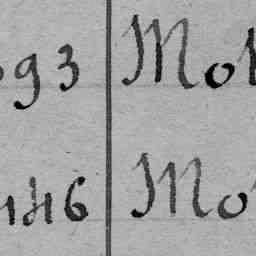 93 Mo
146 Mo